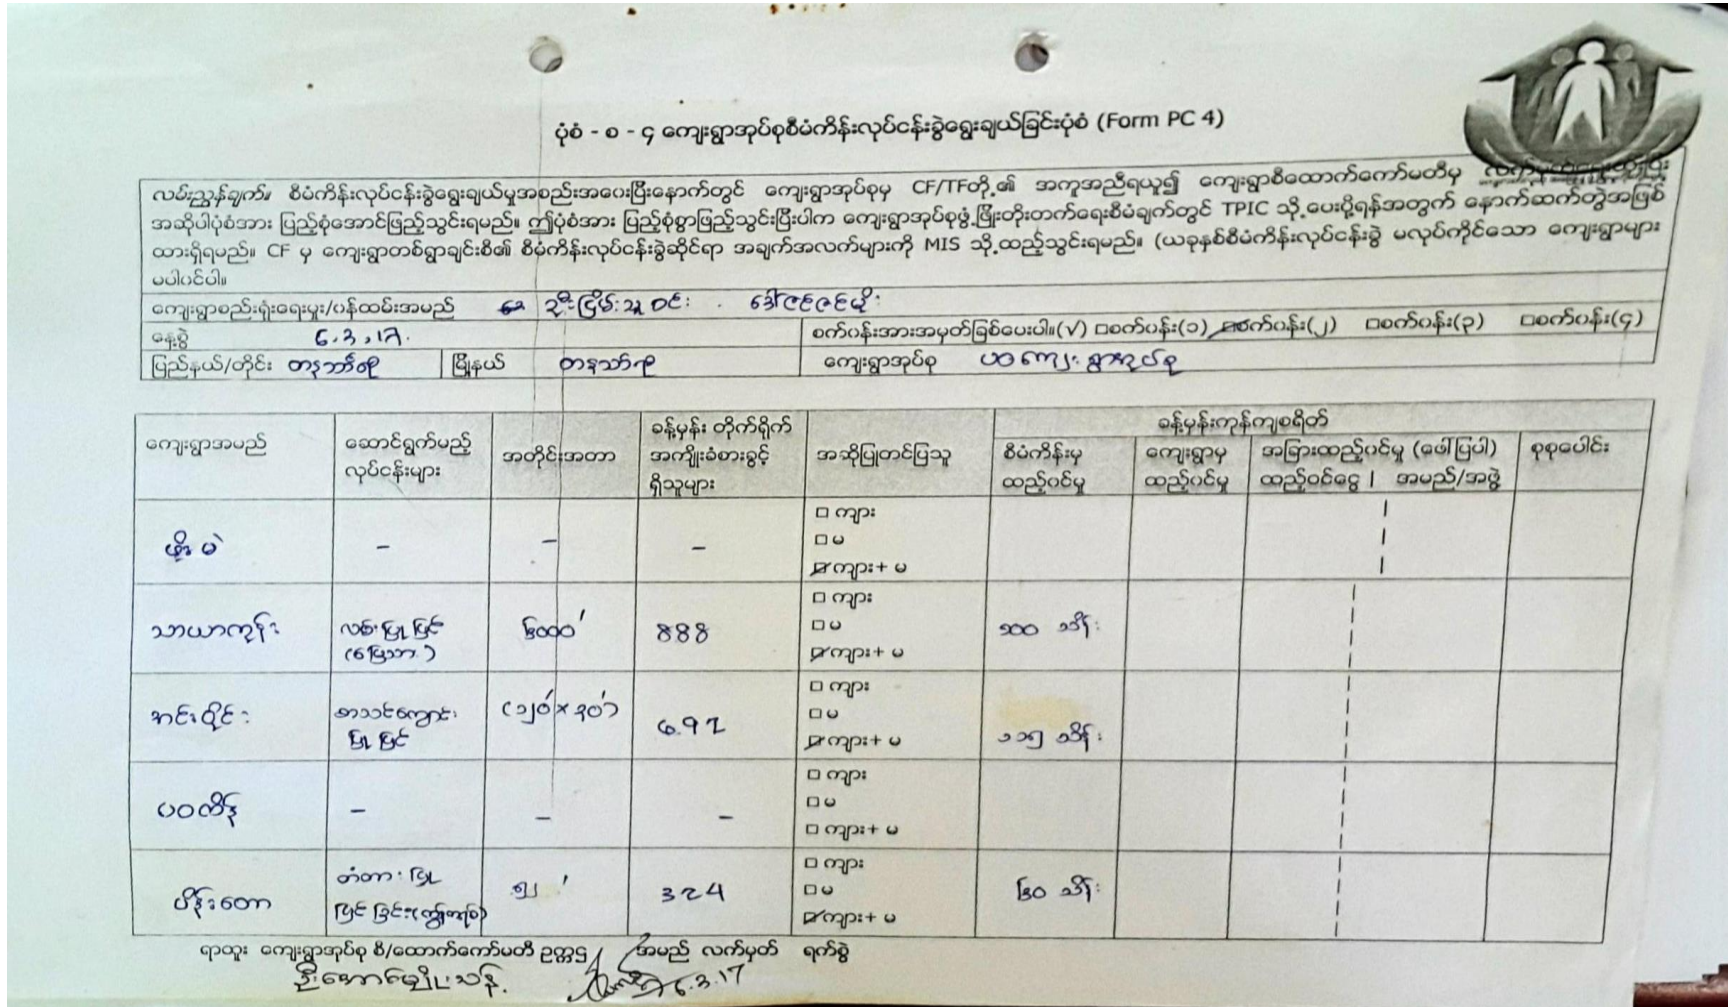 ပုံစံ - စ - ၄ ကျေးရွာအုပ်စုစီမံကိန်းလုပ်ငန်းခွဲရွေးချယ်ခြင်းပုံစံ (Form PC 4)
လမ်းညွှန်ချက်။ စီမံကိန်းလုပ်ငန်းခွဲရွေးချယ်မှုအစည်းအဝေးပြီးနောက်တွင် ကျေးရွာအုပ်စုမှ CF/TFတို့၏ အကူအညီရယူ၍ ကျေးရွာစီထောက်ကော်မတီမှ
အဆိုပါပုံစံအား ပြည့်စုံအောင်ဖြည့်သွင်းရမည်။ ဤပုံစံအား ပြည့်စုံစွာဖြည့်သွင်းပြီးပါက ကျေးရွာအုပ်စုဖွံ့ဖြိုးတိုးတက်ရေးစီမံချက်တွင် TPIC သို့ပေးပို့ရန်အတွက် နောက်ဆက်တွဲအဖြစ်
ထားရှိရမည်။ CF မှ ကျေးရွာတစ်ရွာချင်းစီ၏ စီမံကိန်းလုပ်ငန်းခွဲဆိုင်ရာ အချက်အလက်များကို MIS သို့ထည့်သွင်းရမည်။ (ယခုနှစ်စီမံကိန်းလုပ်ငန်းခွဲ မလုပ်ကိုင်သော ကျေးရွာများ
မပါဝင်ပါ။
ကျေးရွာစည်းရုံးရေးမှူး/ဝန်ထမ်းအမည် ဦးငြိမ်းသူဝင်း . ဒေါ်ဇင်ဇင်မိုး
နေ့စွဲ 6.3.17. စက်ဝန်းအားအမှတ်ခြစ်ပေးပါ။(√) □စက်ဝန်း(၁) ☑စက်ဝန်း(၂) □စက်ဝန်း(၃) □စက်ဝန်း(၄)
ပြည်နယ်/တိုင်း တနင်္သာရီ မြို့နယ် တနင်္သာရီ ကျေးရွာအုပ်စု ပဝ ကျေးရွာအုပ်စု
ခန့်မှန်းကုန်ကျစရိတ်
ကျေးရွာအမည် ဆောင်ရွက်မည့် လုပ်ငန်းများ အတိုင်းအတာ ခန့်မှန်း တိုက်ရိုက် အကျိုးခံစားခွင့် ရှိသူများ အဆိုပြုတင်ပြသူ စီမံကိန်းမှ ထည့်ဝင်မှု ကျေးရွာမှ ထည့်ဝင်မှု အခြားထည့်ဝင်မှု (ဖော်ပြပါ) ထည့်ဝင်ငွေ | အမည်/အဖွဲ့ စုစုပေါင်း
- - -
□ ကျား
□ မ
☑ ကျား+ မ
သာယာကုန်း လမ်းပြုပြင် (မြေသား) ၆၀၀၀' 888 ၁၀၀ သိန်း
□ ကျား
□ မ
☑ ကျား+ မ
အင်းဝိုင်း စာသင်ကျောင်း ပြုပြင် (၁၂၀'×၃၀') 697 ၁၁၅ သိန်း
□ ကျား
□ မ
☑ ကျား+ မ
- - -
□ ကျား
□ မ
□ ကျား+ မ
ပိန်းတော တံတားပြု ပြင်ခြင်း ၅၂ ' 324 ၆၀ သိန်း
□ ကျား
□ မ
☑ ကျား+ မ
ရာထူး ကျေးရွာအုပ်စု စီ/ထောက်ကော်မတီ ဥက္ကဌ အမည် လက်မှတ် ရက်စွဲ
ဦးအောင်မျိုးသန့် 6.3.17